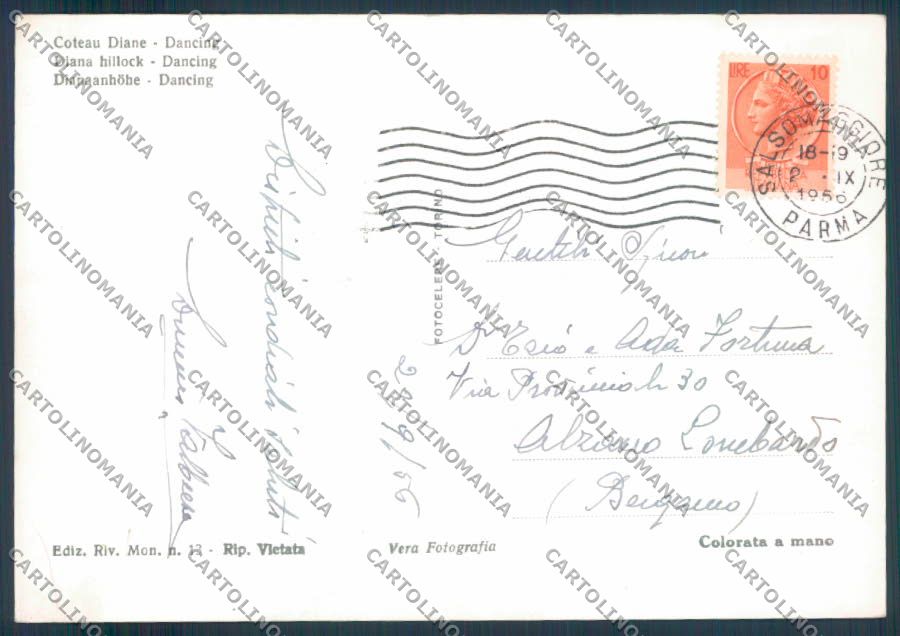 Coteau Diane - Dancing
Diana hillock - Dancing
Dianaanhöhe - Dancing
LIRE 10
SALSOMAGGIORE
18-19
2 · IX
1956
PARMA
Distinti cordiali saluti
2/9/56
FOTOCELERE - TORINO
Gentili Signori
Ezio e Ada Fortuna
Via Provinciale 30
Alzano Lombardo
(Bergamo)
Ediz. Riv. Mon. n. 12 - Rip. Vietata
Vera Fotografia
Colorata a mano
CARTOLINOMANIA